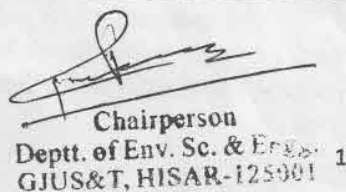 Chairperson
Deptt. of Env. Sc. & Engg. 1
GJUS&T, HISAR-125001